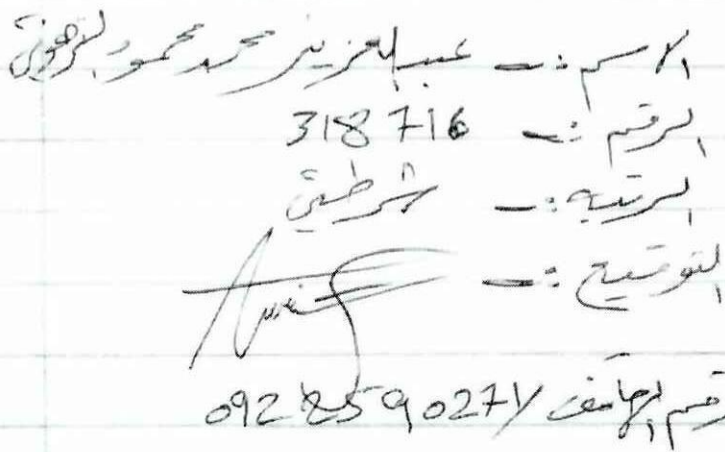 الاسم :- عبدالعزيز محمد محمود الترهوني
الرقم :- 318716
الرتبه :- شرطي
التوقيع :-
رقم الهاتف / 0928590271